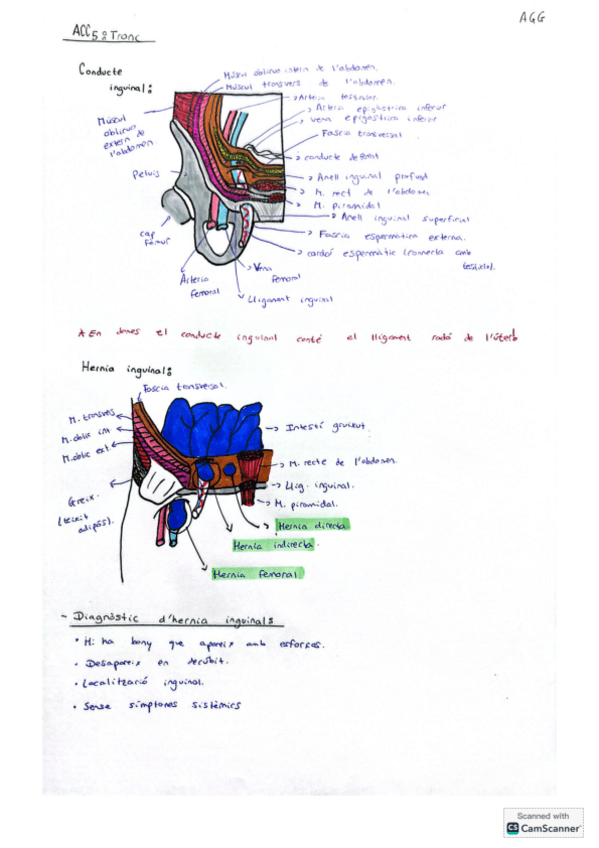 AGG
ACC5: Tronc
Conducte
inguinal:
Múscul oblicuo intern de l'abdomen.
Múscul transvers de l'abdomen.
Arteria testicular.
Arteria epigastrica inferior
Vena epigastrica inferior
Fascia transversal
conducte deferent
Anell inguinal profund
M. rect de l'abdomen
M. piramidal
Anell inguinal superficial
Fascia espermatica externa.
cordó espermàtic (connecta amb
testicle).
Múscul
oblicuo
extern de
l'abdomen
Pelvis
cap
fémur
Arteria
femoral
Vena
femoral
Lligament inguinal
* En dones el conducte inguinal conté el lligament rodó de l'úter
Hernia inguinal:
Fascia transversal.
M. transvers
M. oblic int
M. oblic ext
Greix.
(teixit
adipós).
Intestí gruixut.
M. recte de l'abdomen.
Llig. inguinal.
M. piramidal.
Hernia directa
Hernia indirecta.
Hernia femoral
- Diagnòstic d'hernia inguinals
• Hi ha bony que apareix amb esforços.
• Desapareix en decúbit.
• Localització inguinal.
• Sense símptomes sistèmics
Scanned with
CS CamScanner